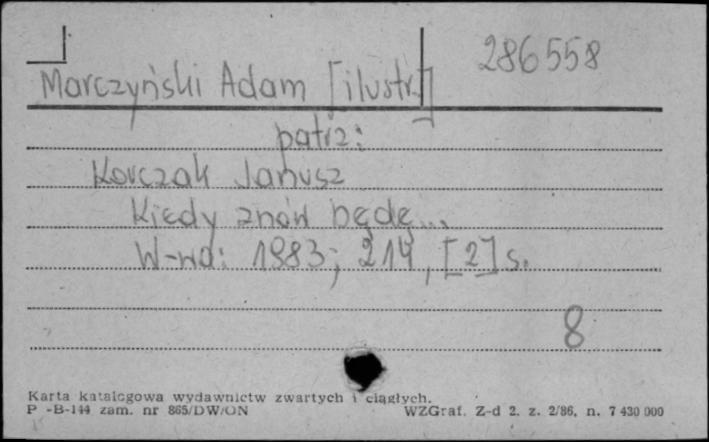 286558
Marczyński Adam [ilustr.]
patrz:
Korczak Janusz
Kiedy znów będę...
W-wa: 1983; 214, [2] s.
8
Karta katalogowa wydawnictw zwartych i ciągłych.
P -B-144 zam. nr 865/DW/ON WZGraf. Z-d 2. z. 2/86, n. 7 430 000